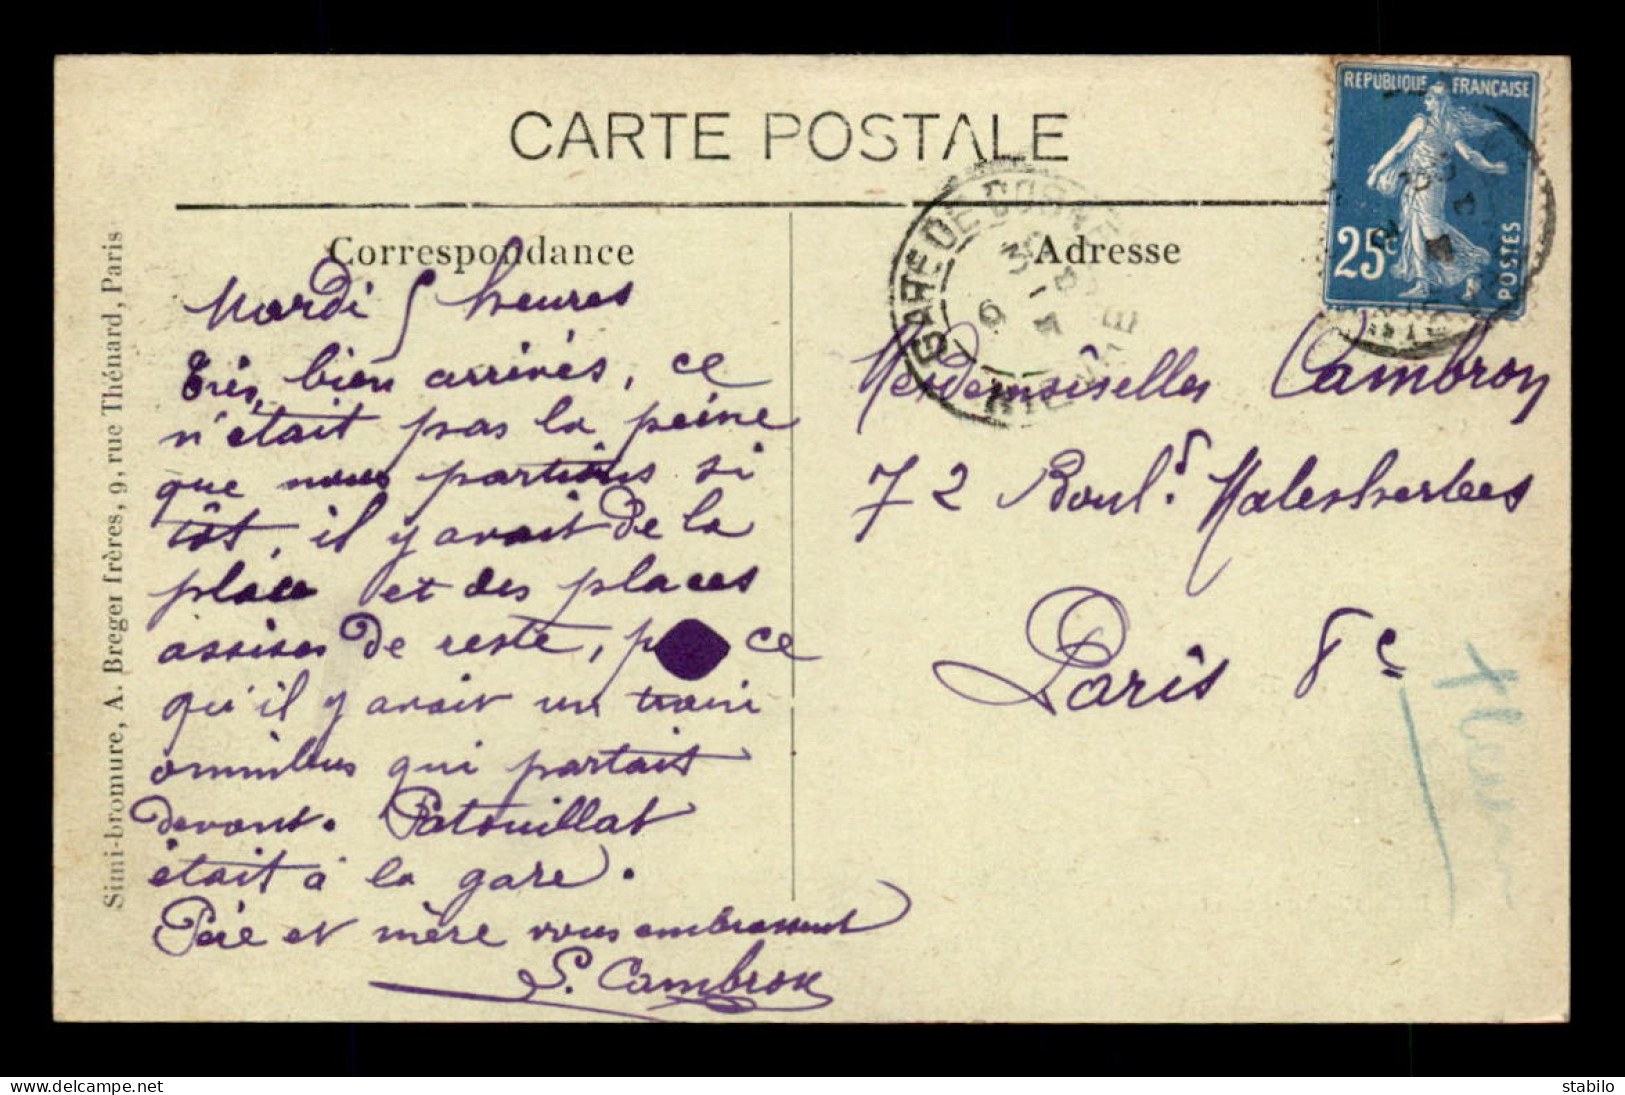 CARTE POSTALE
Correspondance
Adresse
REPUBLIQUE FRANÇAISE
25c
POSTES
GARE DE
Mardi 5 heures
Très bien arrivés, ce
n'était pas la peine
que nous partions si
tôt, il y avait de la
place et des places
assises de reste, p ce
qu'il y avait un train
omnibus qui partait
devant. Patouillat
était à la gare.
Père et mère vous embrassent
S. Cambron
Mesdemoiselles Cambron
72 Boul.d Malesherbes
Paris 8e
Simi-bromure, A. Breger frères, 9, rue Thénard, Paris
delcampe.net
stabilo